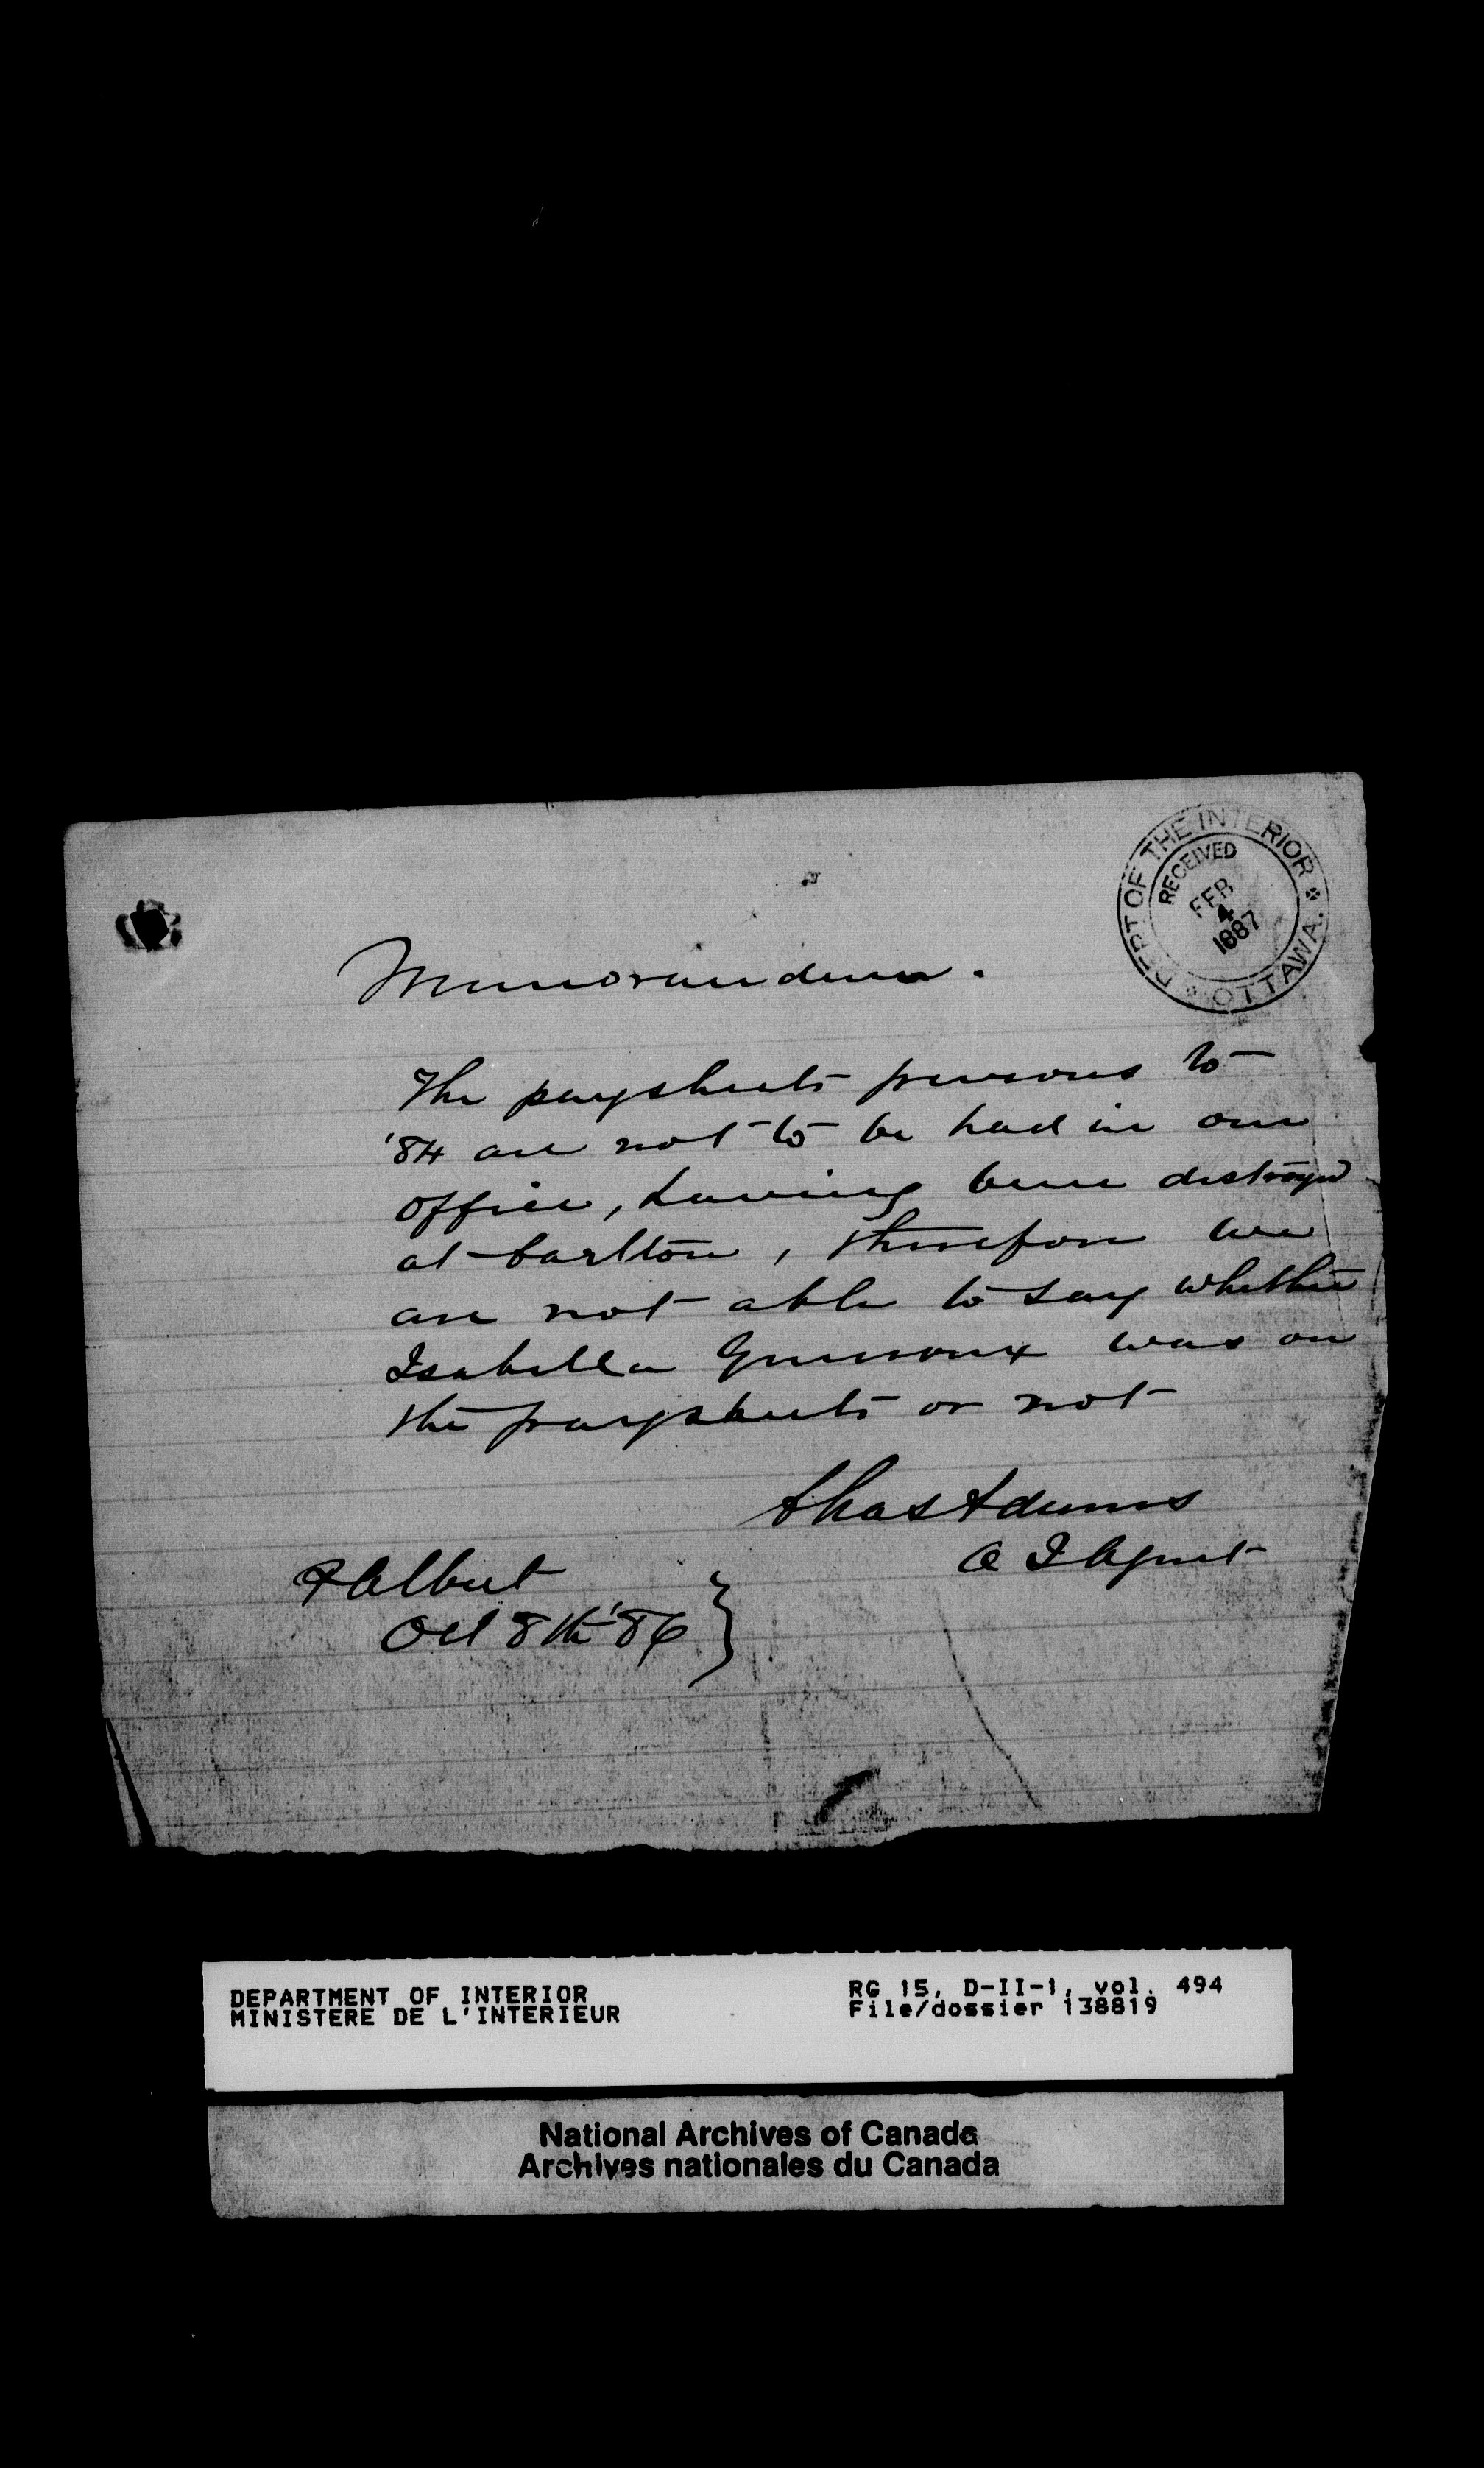 DEPT OF THE INTERIOR
OTTAWA.
RECEIVED
FEB
4
1887
Memorandum.
The paysheets previous to
'84 are not to be had in our
office, having been destroyed
at Carlton, therefore we
are not able to say whether
Isabella was on
the paysheets or not
Chas Adams
A I Agent
P Albert
Oct 8th '86
DEPARTMENT OF INTERIOR RG 15, D-II-1, vol. 494
MINISTERE DE L'INTERIEUR File/dossier 138819
National Archives of Canada
Archives nationales du Canada